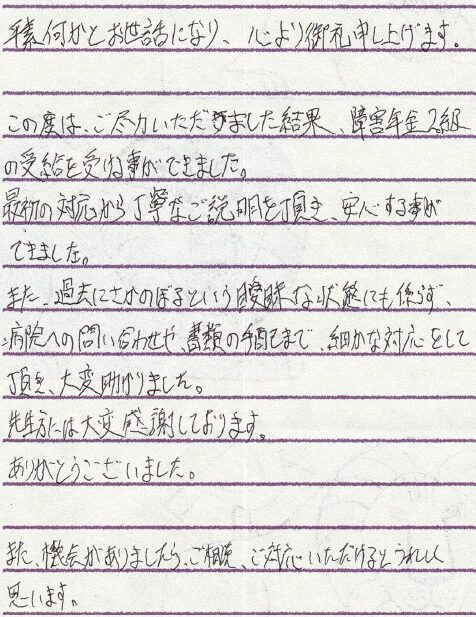 平素何かとお世話になり、心より御礼申し上げます。
この度は、ご尽力いただきました結果、障害年金2級
の受給を受ける事ができました。
最初の対応から丁寧なご説明を頂き、安心する事が
できました。
また、過去にさかのぼるという曖昧な状態にも係らず、
病院への問い合わせや、書類の手配まで、細かな対応をして
頂き、大変助かりました。
先生方には大変感謝しております。
ありがとうございました。
また、機会がありましたら、ご相談、ご対応いただけるとうれしく
思います。